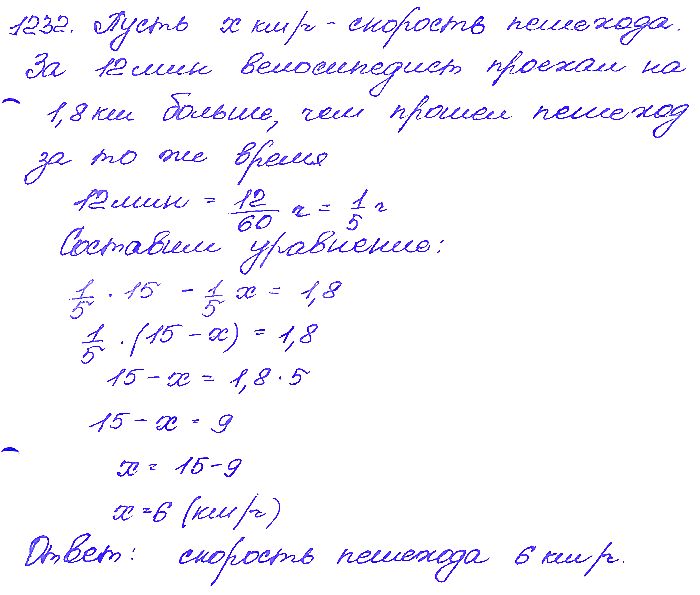 1232. Пусть x км/ч - скорость пешехода.
За 12 мин велосипедист проехал на
1,8 км больше, чем прошел пешеход
за то же время
12 мин = 12/60 ч = 1/5 ч
Составим уравнение:
1/5 · 15 - 1/5 x = 1,8
1/5 · (15 - x) = 1,8
15 - x = 1,8 · 5
15 - x = 9
x = 15 - 9
x = 6 (км/ч)
Ответ: скорость пешехода 6 км/ч.